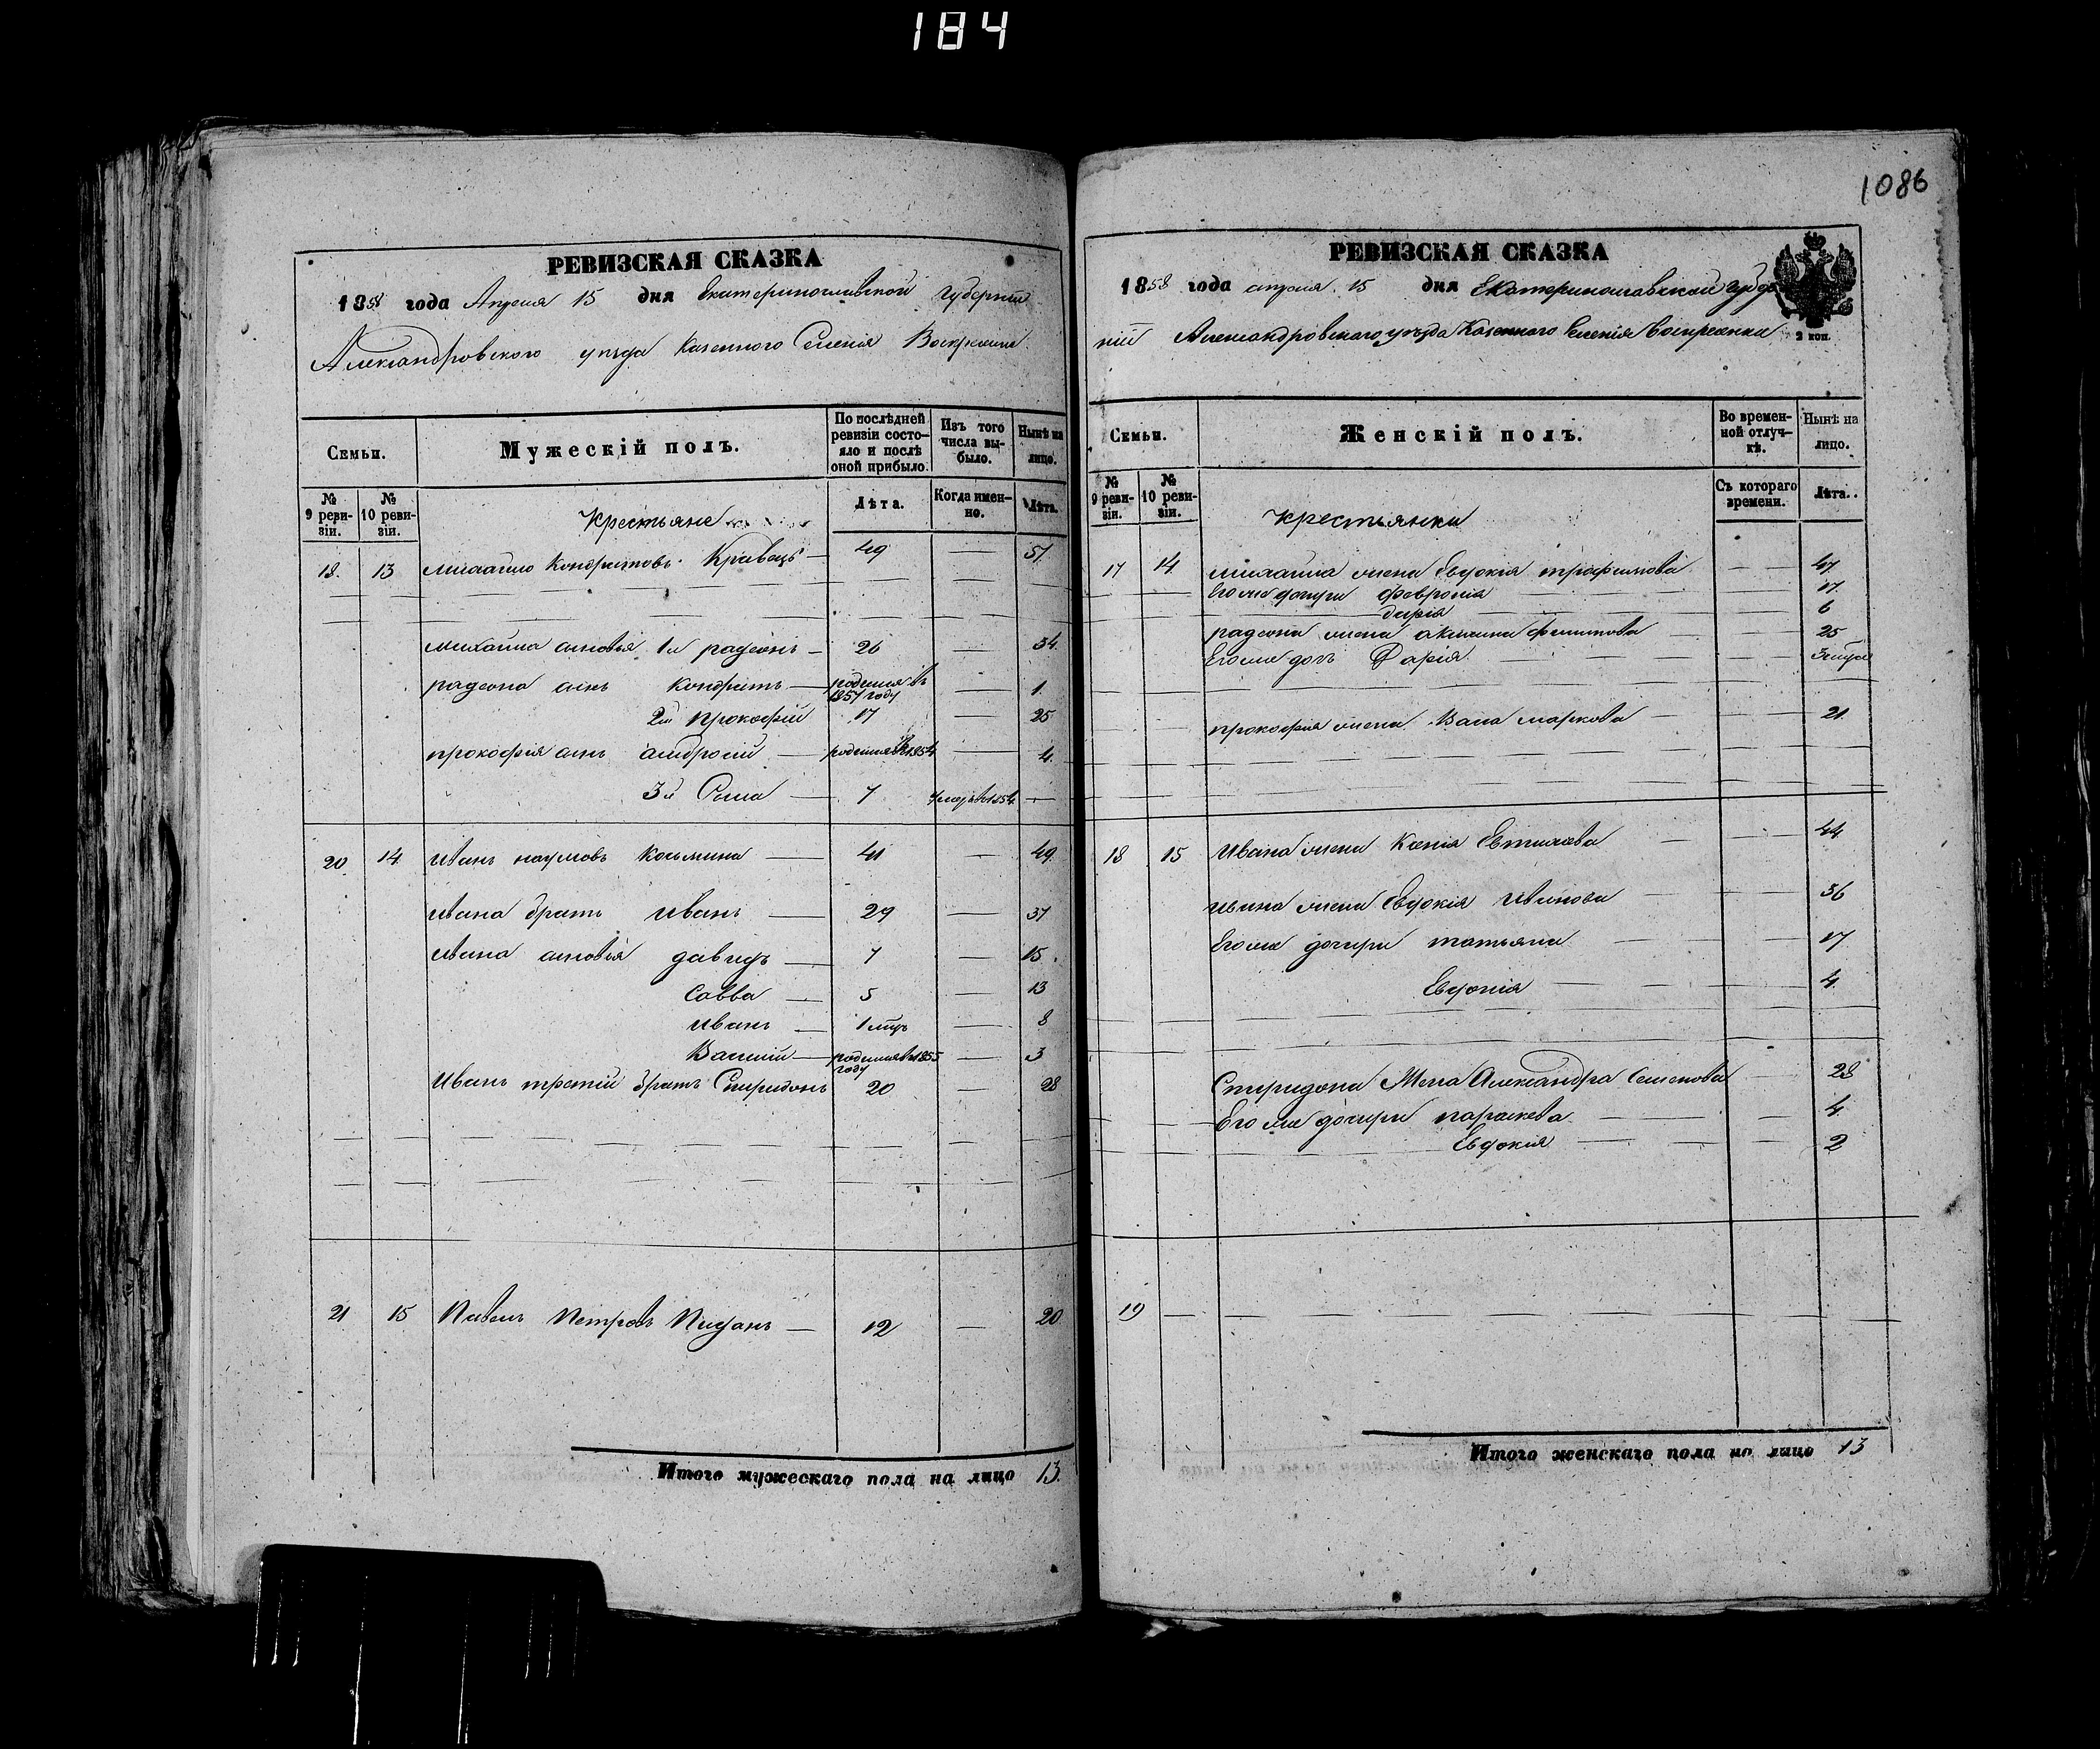 184
1086
РЕВИЗСКАЯ СКАЗКА
1858 года Апреля 15 дня Екатеринославской Губерніи
Александровского уезда Казенного Селенія Воскресенки
Семьи.
Мужескій полъ.
По послѣдней ревизіи состояло и послѣ оной прибыло.
Изъ того числа выбыло.
Нынѣ на лицо.
№ 9 ревизіи.
№ 10 ревизіи.
Лѣта.
Когда именно.
Лѣта.
Крестьяне
18. 13 Михайло Кондратовъ Кравецъ — 49 — 57.
михайла сыновья 1й радеонъ — 26 — 34.
радеона сынъ Кондратъ — родился въ 1857 году — 1.
2й прокофій 17 — 25
прокофія сынъ амбросій — родился в 1854 — 4.
3й — 7 умер в 1854 —
20. 14 Иванъ наумовъ Косьмина — 41 — 49.
Ивана братъ Иванъ — 29 — 37
Ивана сыновья давидъ — 7 — 15.
Савва — 5 — 13
Иванъ — 1 — 8
Василій — родился в 1855 году — 3
Иванъ третій братъ Спиридонъ 20 — 28
21 15 Павелъ Петровъ — 12 — 20
Итого мужескаго пола на лицо 13.
РЕВИЗСКАЯ СКАЗКА
1858 года апреля 15 дня Екатеринославской губер
ніи Александровского уезда Казенного Селенія Воскресенки
2 коп.
Семьи.
Женскій полъ.
Во временной отлучкѣ.
Нынѣ на лицо.
№ 9 ревизіи.
№ 10 ревизіи.
Съ котораго времени.
Лѣта.
Крестьянки
17 14 михайла жена Евдокія трофимова — — 47.
Его же дочери Февронія — — 17.
дарія — — 6
радеона жена акилина — — 25
Его же дочь Дарія — —
прокофія жена Васа маркова — — 21.
18 15 Ивана жена Ксенія — — 44
ивана жена Евдокія Иванова — — 36
Его же дочери татьяна — — 17
Евдокія — — 4.
Спиридона Жена Александра Семенова — 28
Его же дочери параскева — — 4.
Евдокія — — 2
19 — —
Итого женскаго пола на лицо 13